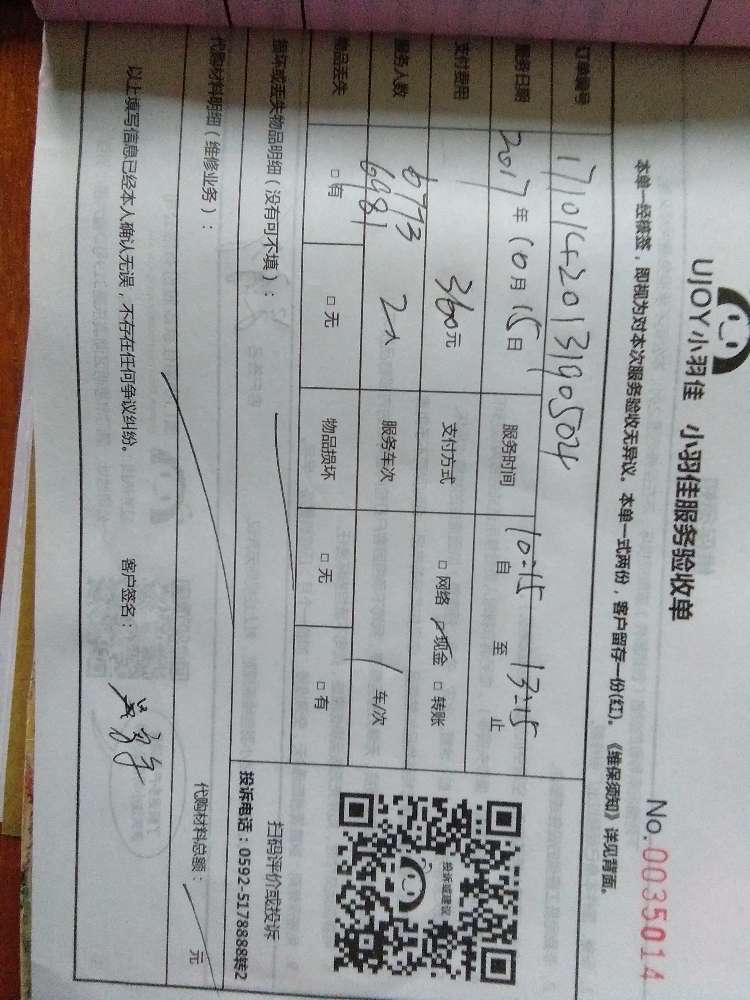 UJOY小羽佳 小羽佳服务验收单
No.0035014
本单一经核签，即视为对本次服务验收无异议。本单一式两份，客户留存一份(红)。《维保须知》详见背面。
订单编号 1710142013190504
服务日期 2017年10月15日 服务时间 10:15自 至13:15止
支付费用 360元 支付方式 □网络 ☑现金 □转账
服务人数 6713 6981 2人 服务车次 1车/次
物品丢失 □有 □无 物品损坏 □无 □有
损坏或丢失物品明细（没有可不填）：
代购材料明细（维修业务）：
代购材料总额： 元
投诉或建议
扫码评价或投诉
投诉电话：0592-5178888转2
以上填写信息已经本人确认无误，不存在任何争议纠纷。 客户签名：